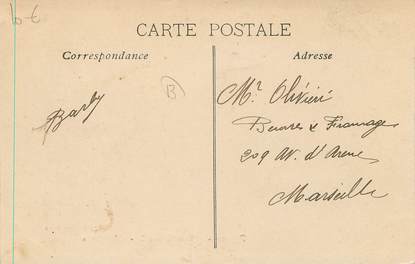 10 €
CARTE POSTALE
Correspondance
Adresse
B
Mr. Oliviéri
Beurres & Fromages
209 Av. d'Arenc
Marseille